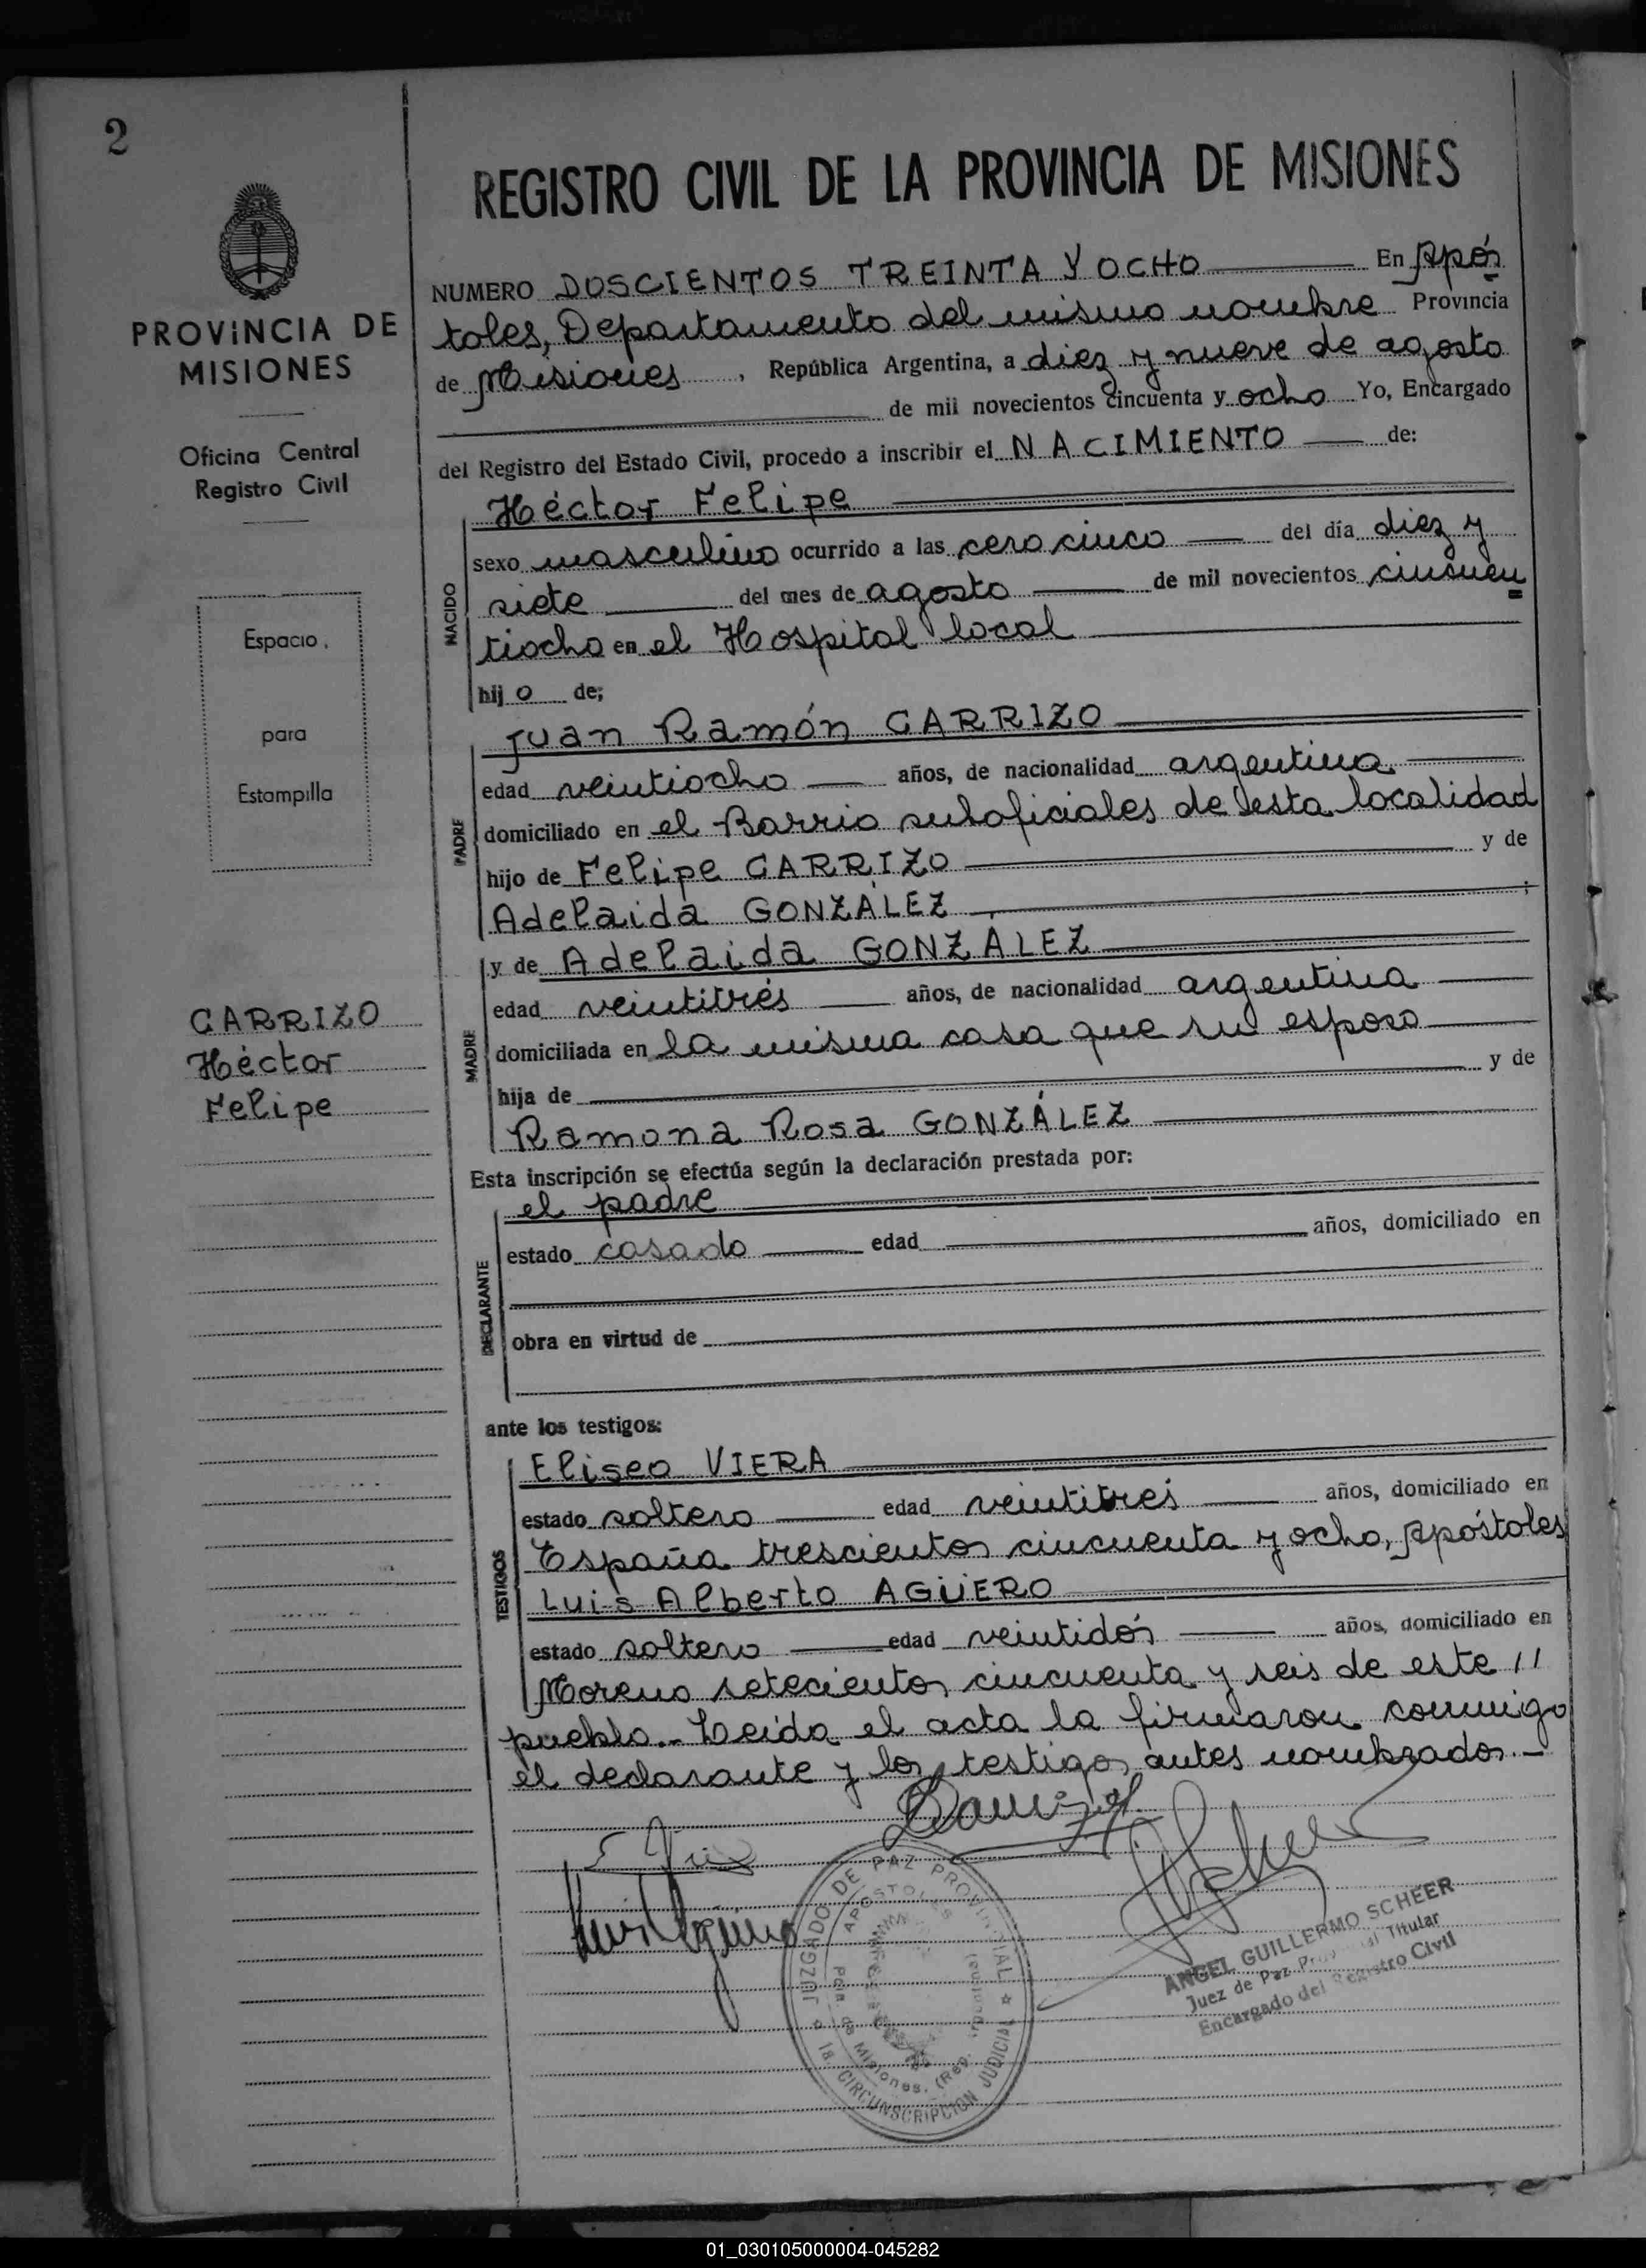 2
REGISTRO CIVIL DE LA PROVINCIA DE MISIONES
PROVINCIA DE
MISIONES
Oficina Central
Registro Civil
Espacio
para
Estampilla
CARRIZO
Héctor
Felipe
NUMERO DOSCIENTOS TREINTA Y OCHO En Após
toles, Departamento del mismo nombre Provincia
de Misiones, República Argentina, a diez y nueve de agosto
de mil novecientos cincuenta y ocho Yo, Encargado
del Registro del Estado Civil, procedo a inscribir el NACIMIENTO de:
NACIDO
Héctor Felipe
sexo masculino ocurrido a las cero cinco del día diez y
siete del mes de agosto de mil novecientos cincuen
tiocho en el Hospital local
hijo de;
PADRE
Juan Ramón CARRIZO
edad veintiocho años, de nacionalidad argentina
domiciliado en el Barrio suboficiales de esta localidad
hijo de Felipe CARRIZO y de
Adelaida GONZÁLEZ ;
MADRE
y de Adelaida GONZÁLEZ
edad veintitrés años, de nacionalidad argentina
domiciliada en la misma casa que su esposo
hija de y de
Ramona Rosa GONZÁLEZ
Esta inscripción se efectúa según la declaración prestada por:
DECLARANTE
el padre
estado casado edad años, domiciliado en
obra en virtud de
ante los testigos:
TESTIGOS
Eliseo VIERA
estado soltero edad veintitrés años, domiciliado en
España trescientos cincuenta y ocho, Apóstoles
Luis Alberto AGÜERO
estado soltero edad veintidós años, domiciliado en
Moreno setecientos cincuenta y seis de este //
pueblo.- Leída el acta la firmaron conmigo
el declarante y los testigos antes nombrados.-
JUZGADO DE PAZ PROVINCIAL
APOSTOLES
Misiones. (Rep.
1a CIRCUNSCRIPCION JUDICIAL
ANGEL GUILLERMO SCHEER
Juez de Paz Provincial Titular
Encargado del Registro Civil
01_030105000004-045282